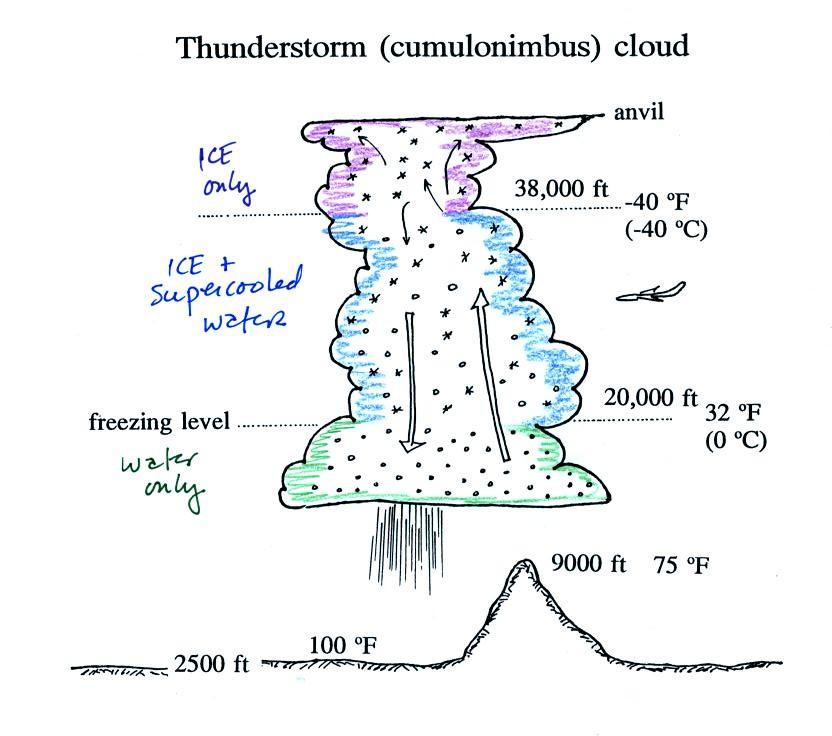 Thunderstorm (cumulonimbus) cloud
anvil
ICE
only
38,000 ft
-40 ºF
(-40 ºC)
ICE +
Supercooled
water
20,000 ft
32 ºF
(0 ºC)
freezing level
water
only
9000 ft 75 ºF
100 ºF
2500 ft